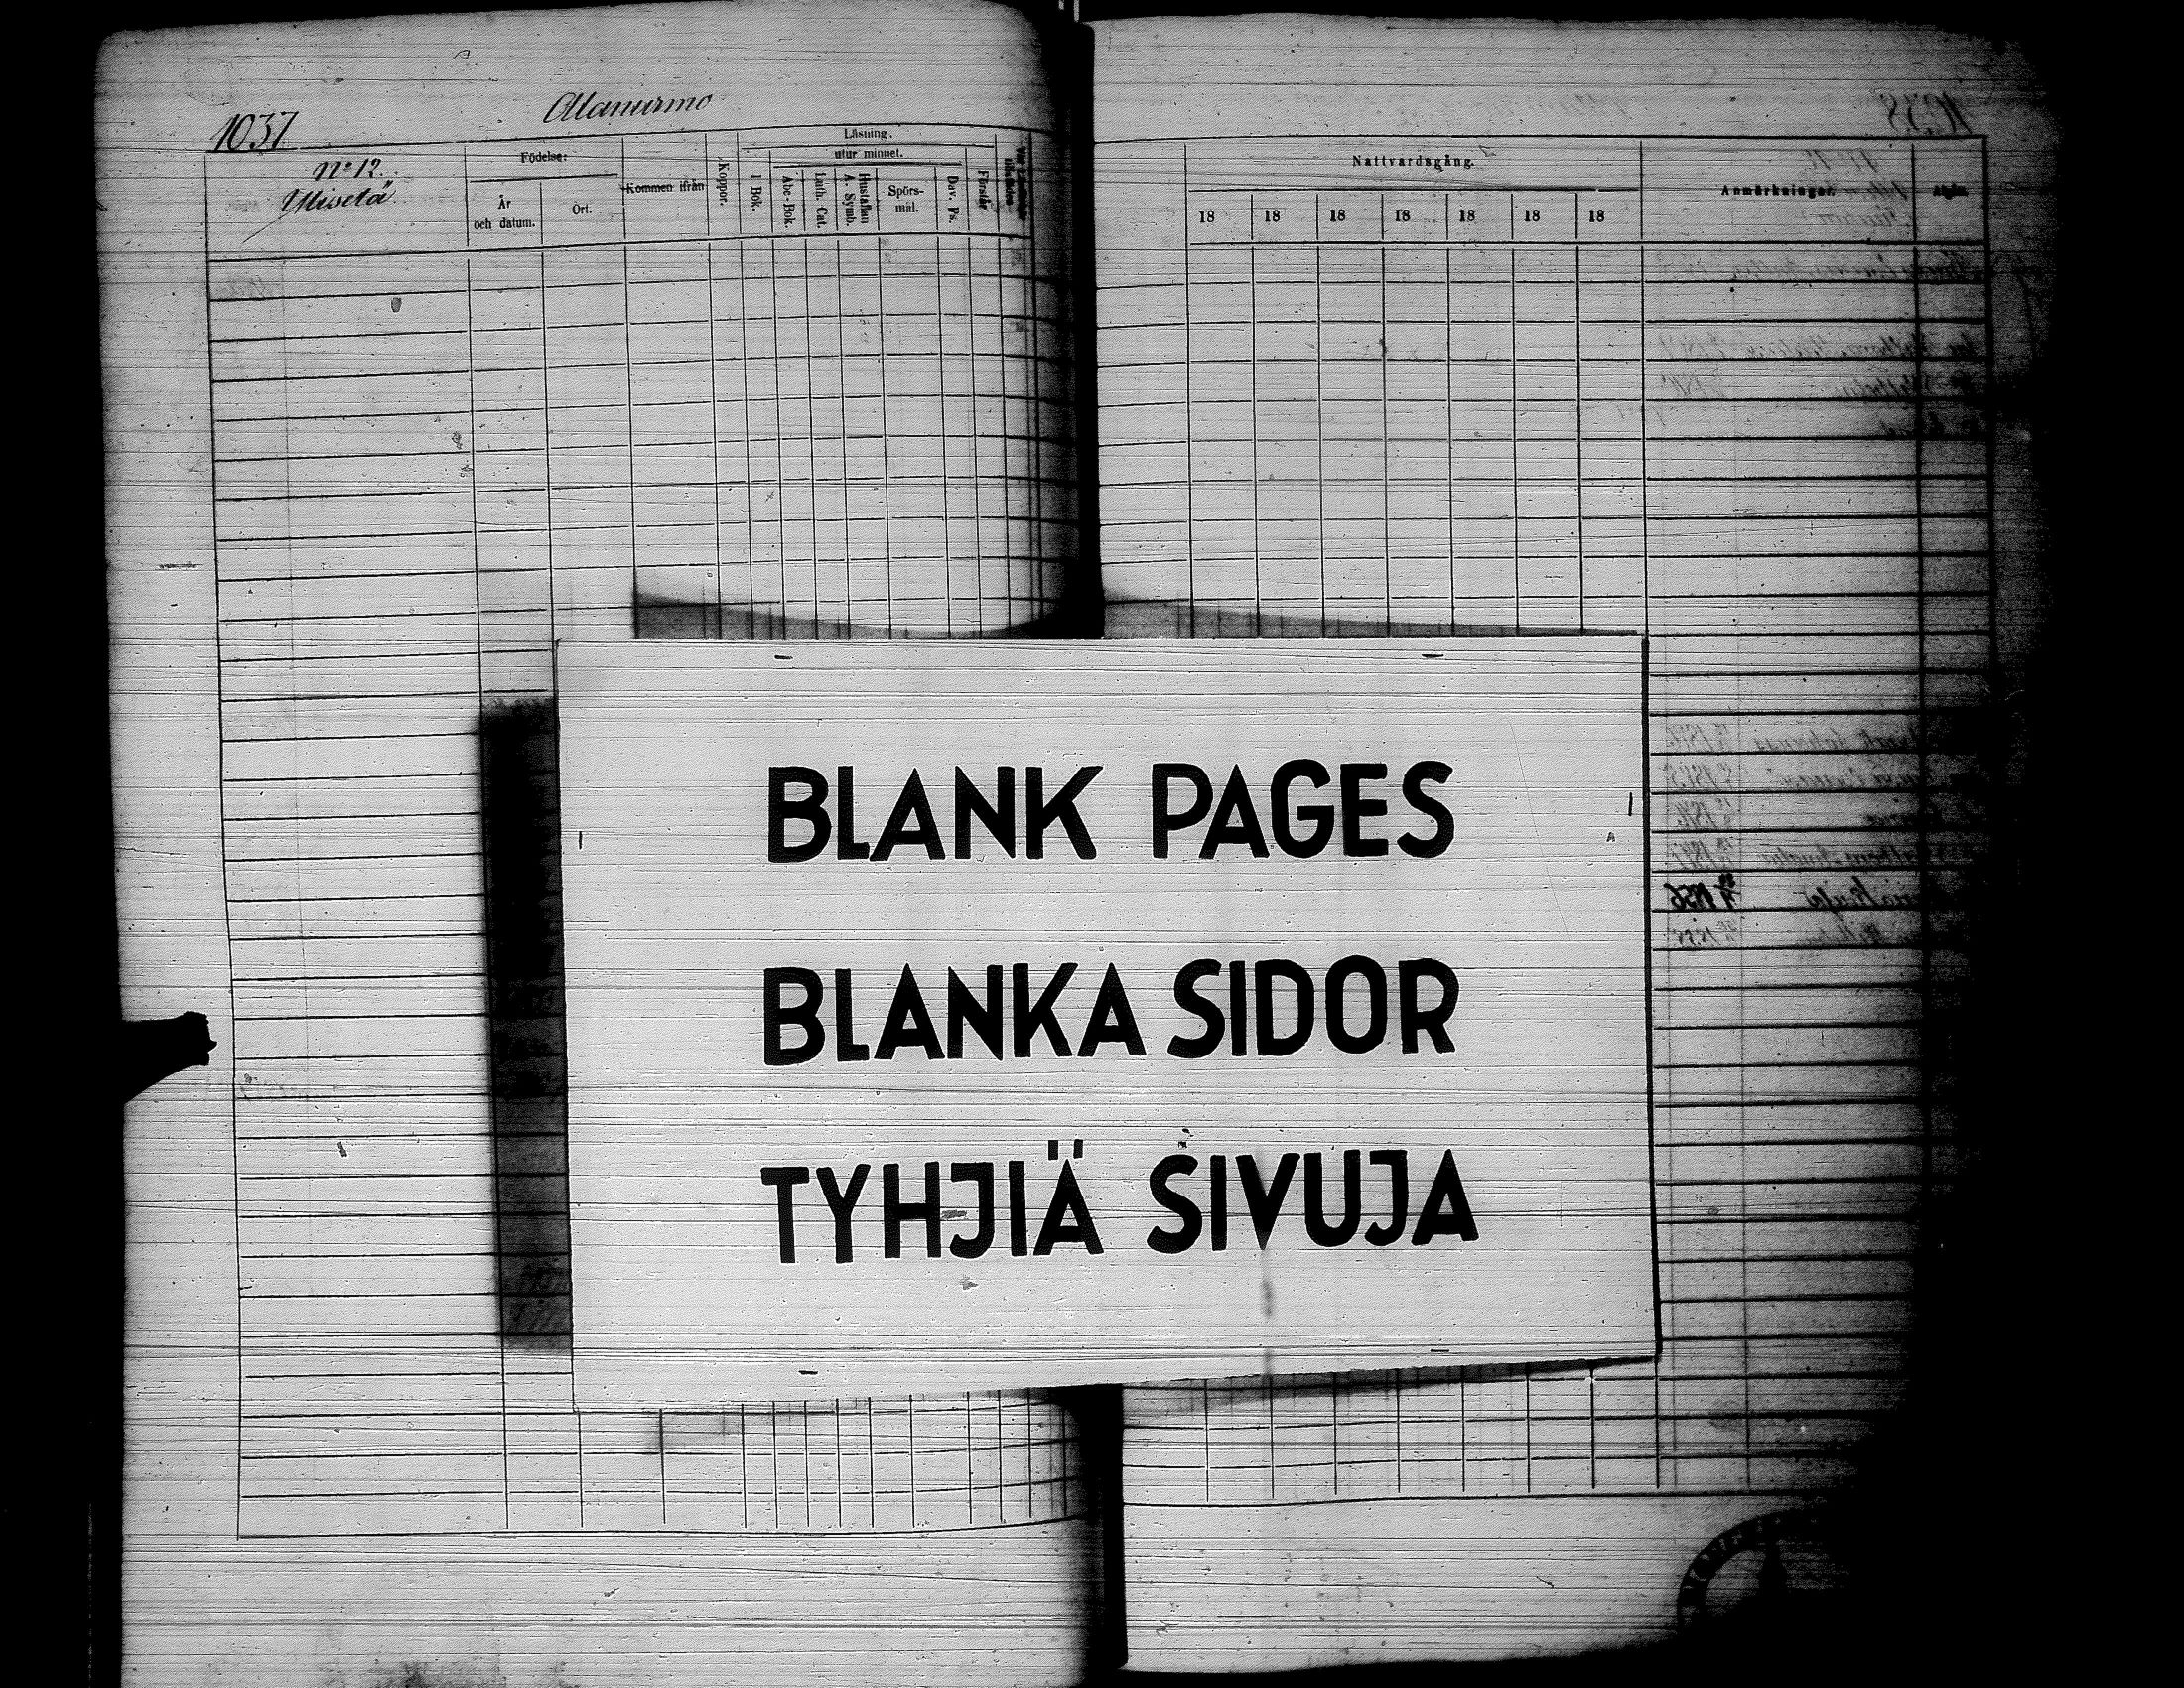 1037
Alanurmo
No 12.
Ylisetä
Födelse:
År
och datum.
Ort.
Kommen ifrån
Koppor.
Läsning.
utur minnet.
I Bok.
Abc-Bok.
Luth. Cat.
Hustaflan
A. Symb.
Spörs-
mål.
Dav. Ps.
Förstår
Nattvardsgång.
18 18 18 18 18 18 18
Anmärkningar.
BLANK PAGES
BLANKA SIDOR
TYHJIÄ SIVUJA